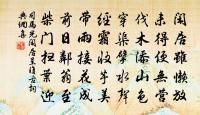 閑居雖懶放
未得便無營
伐木添山色
穿渠擘水聲
經霜收芋美
帶雨接花成
前日鄰翁至
柴門掃葉迎
司馬光閑居呈復古詞
典網